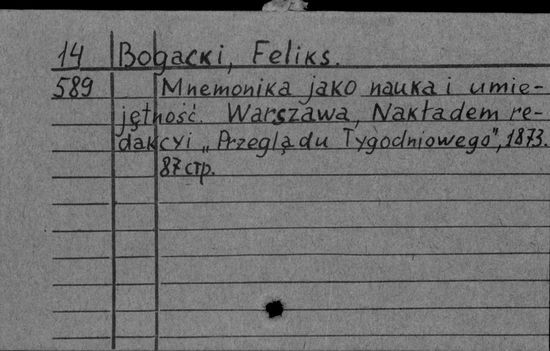 14 Bogacki, Feliks.
589 Mnemonika jako nauka i umie-
jętność. Warszawa, Nakładem re-
dakcyi „Przeglądu Tygodniowego", 1873.
87 стр.